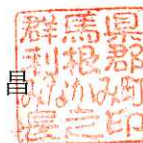 昌
群馬県
利根郡
みなかみ町
長之印